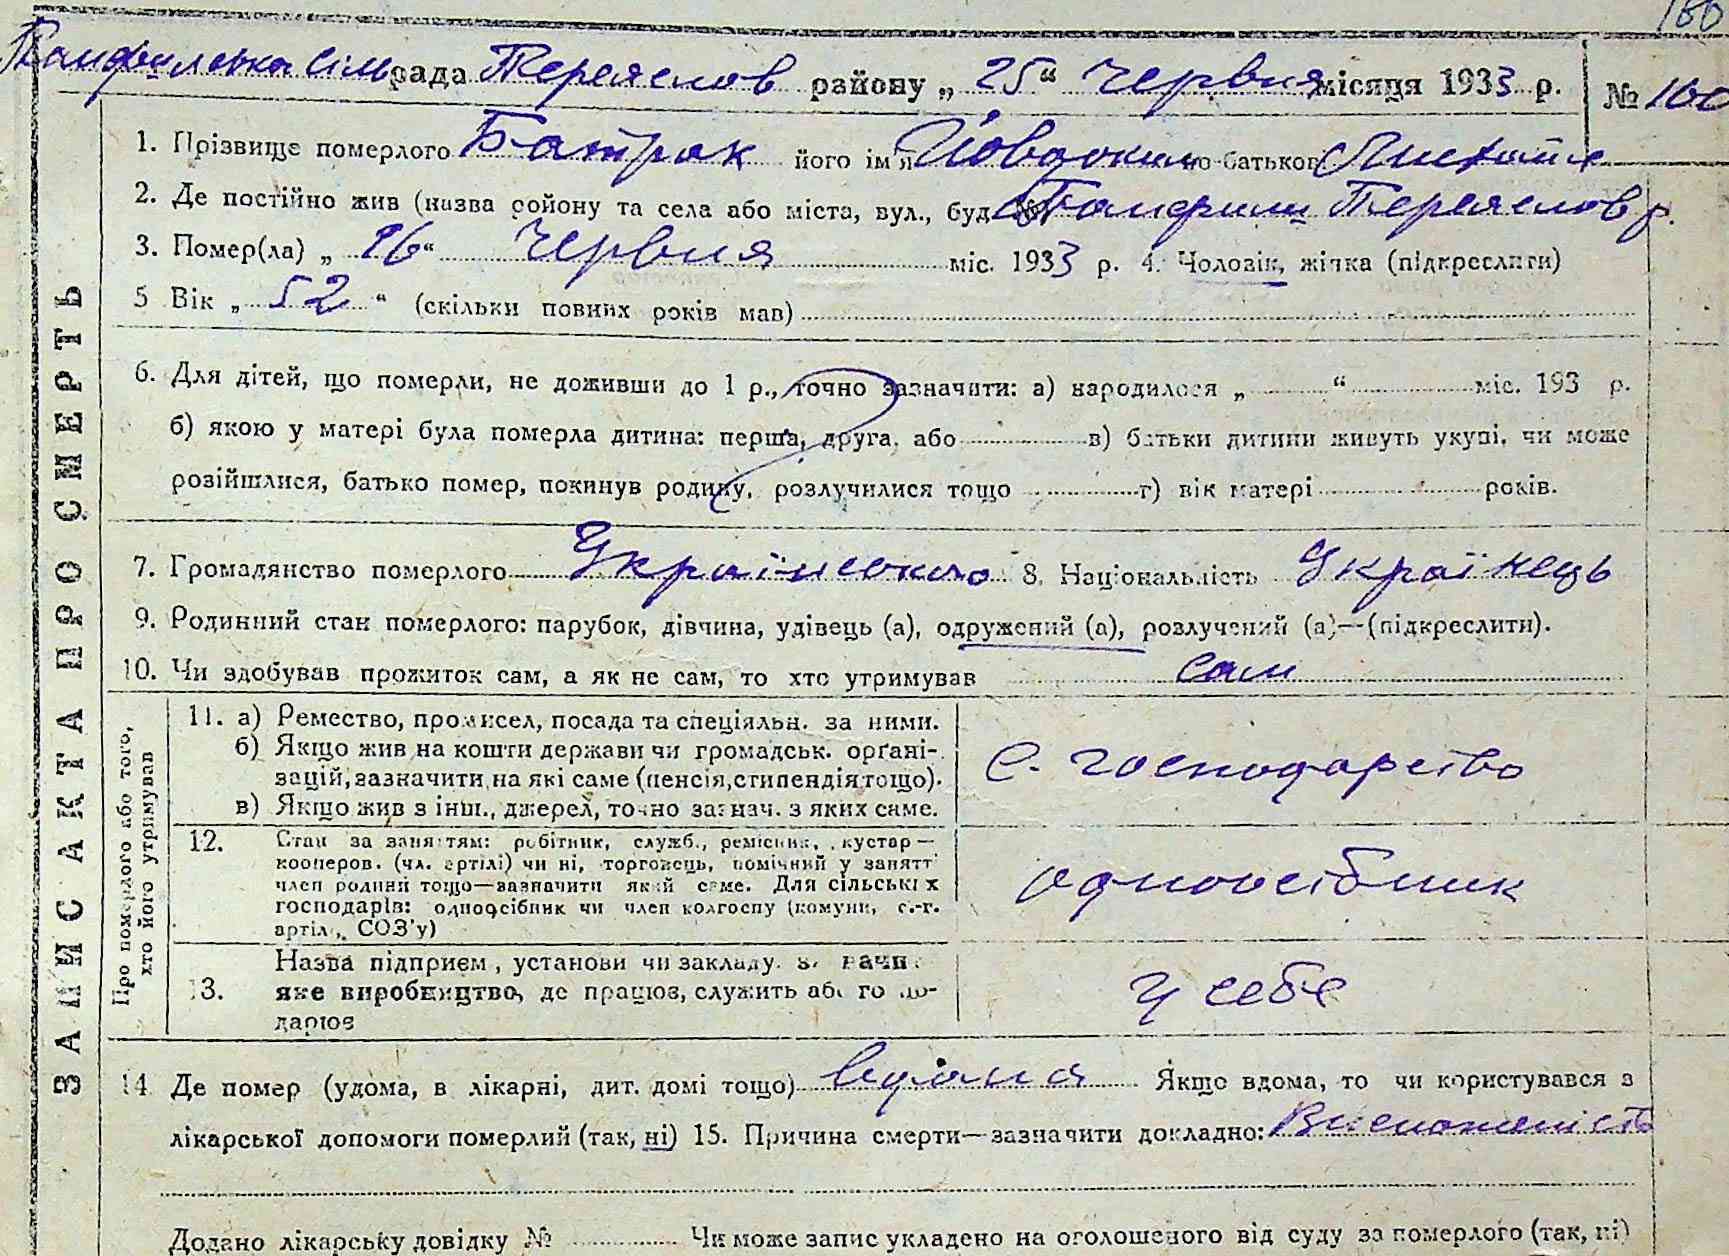 160
Панфильська сільрада Переяслов району „25“ Червня місяця 1933 р. № 160
1. Прізвище померлого Батрак його ім'я Йовдоким по-батькові Михайл
2. Де постійно жив (назва району та села або міста, вул., буд. № Панфили Переяслов р.
3. Помер(ла) „16“ Червня міс. 1933 р. 4. Чоловік, жінка (підкреслити)
5 Вік „52“ (скільки повних років мав)
6. Для дітей, що померли, не доживши до 1 р., точно зазначити: а) народилося „ “ міс. 193 р.
б) якою у матері була померла дитина: перша, друга, або в) батьки дитини живуть укупі, чи може
розійшлися, батько помер, покинув родину, розлучилися тощо г) вік матері років.
7. Громадянство померлого Українського 8. Національність Українець
9. Родинний стан померлого: парубок, дівчина, удівець (а), одружений (а), розлучений (а)—(підкреслити).
10. Чи здобував прожиток сам, а як не сам, то хто утримував сам
11. а) Ремество, промисел, посада та спеціяльн. за ними.
б) Якщо жив на кошти держави чи громадськ. орґані-
зацій, зазначити, на які саме (пенсія, стипендія тощо).
в) Якщо жив з інш., джерел, точно зазнач. з яких саме.
С. господарство
12. Стан за заняттям: робітник, служб., ремісник, кустар—
кооперов. (чл. артілі) чи ні, торговець, помічний у занятт
член родини тощо—зазначити який саме. Для сільських
господарів: одноосібник чи член колгоспу (комуни, с.-г.
артілі, СОЗ'у)
одноосібник
13. Назва підприєм, установи чи закладу, зазнач
яке виробництво, де працює, служить або госпо-
дарює
у себе
14 Де помер (удома, в лікарні, дит. домі тощо) вдома Якщо вдома, то чи користувався з
лікарської допомоги померлий (так, ні) 15. Причина смерти—зазначити докладно: Виснаженість
Додано лікарську довідку № Чи може запис укладено на оголошеного від суду за померлого (так, ні)
ЗАПИС АКТА ПРО СМЕРТЬ
Про померлого або того,
хто його утримував